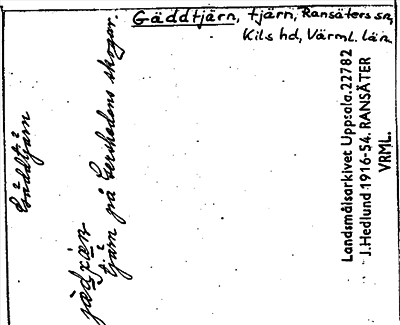 Gäddtjärn, tjärn, Ransäters sn,
Kils hd, Värml. län.
Gäddtjärn
tjärn på Gershedens skogar.
Landsmålsarkivet Uppsala. 22782
J. Hedlund 1916-54. RANSÄTER
VRML.